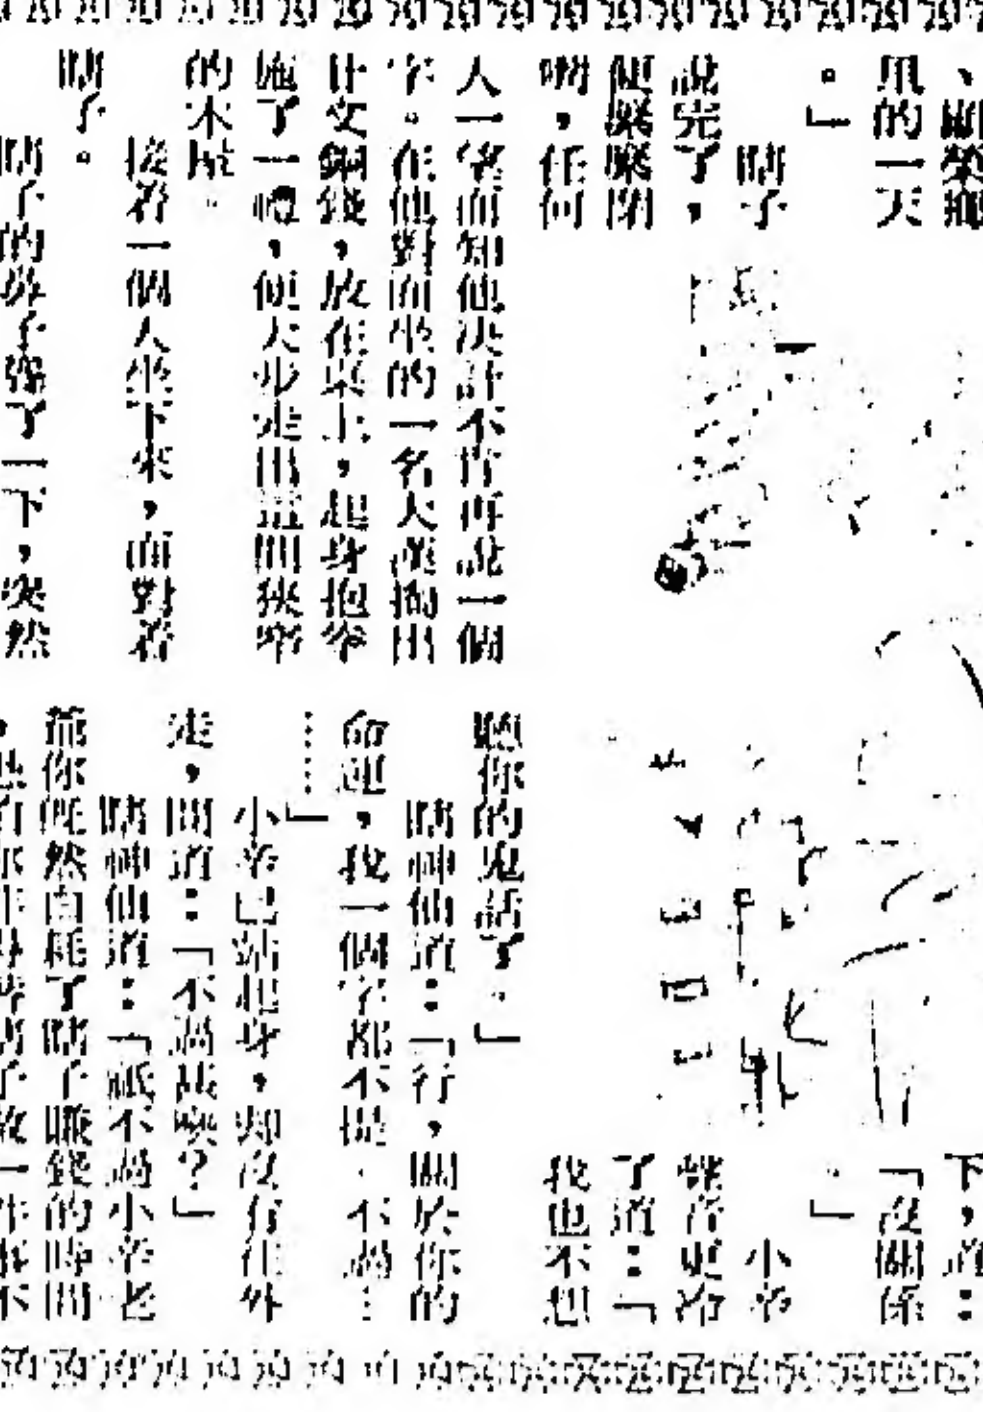 、顧榮
凧的一天
。」
瞎子
說完了，
便緊緊閉
嘴，任何
人一望而知他決計不肯再說一個
字。在他對面坐的一名大漢掏出
廿文銅錢，放在桌上，起身抱拳
施了一禮，便大步走出這間狹窄
的木屋。
接着一個人坐下來，面對着
瞎子。
瞎子的鼻子了一下，突然
下，道：
「沒關係
。」
小辛
聲音更冷
了道：「
我也不想
聽你的鬼話了。」
瞎神仙道：「行，關於你的
命運，我一個字都不提。不過…
……」
小辛已站起身，却沒有往外
走，問道：「不過甚麼？」
瞎神仙道：「祗不過小辛老
你既然白耗了瞎子賺錢的時間